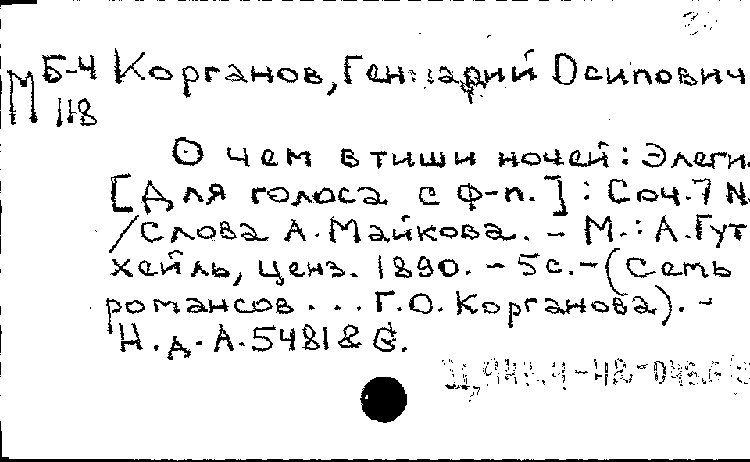 М Б-4 Корганов, Геннадий Осипович
118
О чем в тиши ночей: Элеги
[Для голоса с ф-п.]: Соч. 7 N
/Слова А. Майкова. - М.: А. Гут
хейль, ценз. 1890. - 5 с. - (Семь
романсов . . . Г.О. Корганова). -
Н. д. А. 5481 & G.